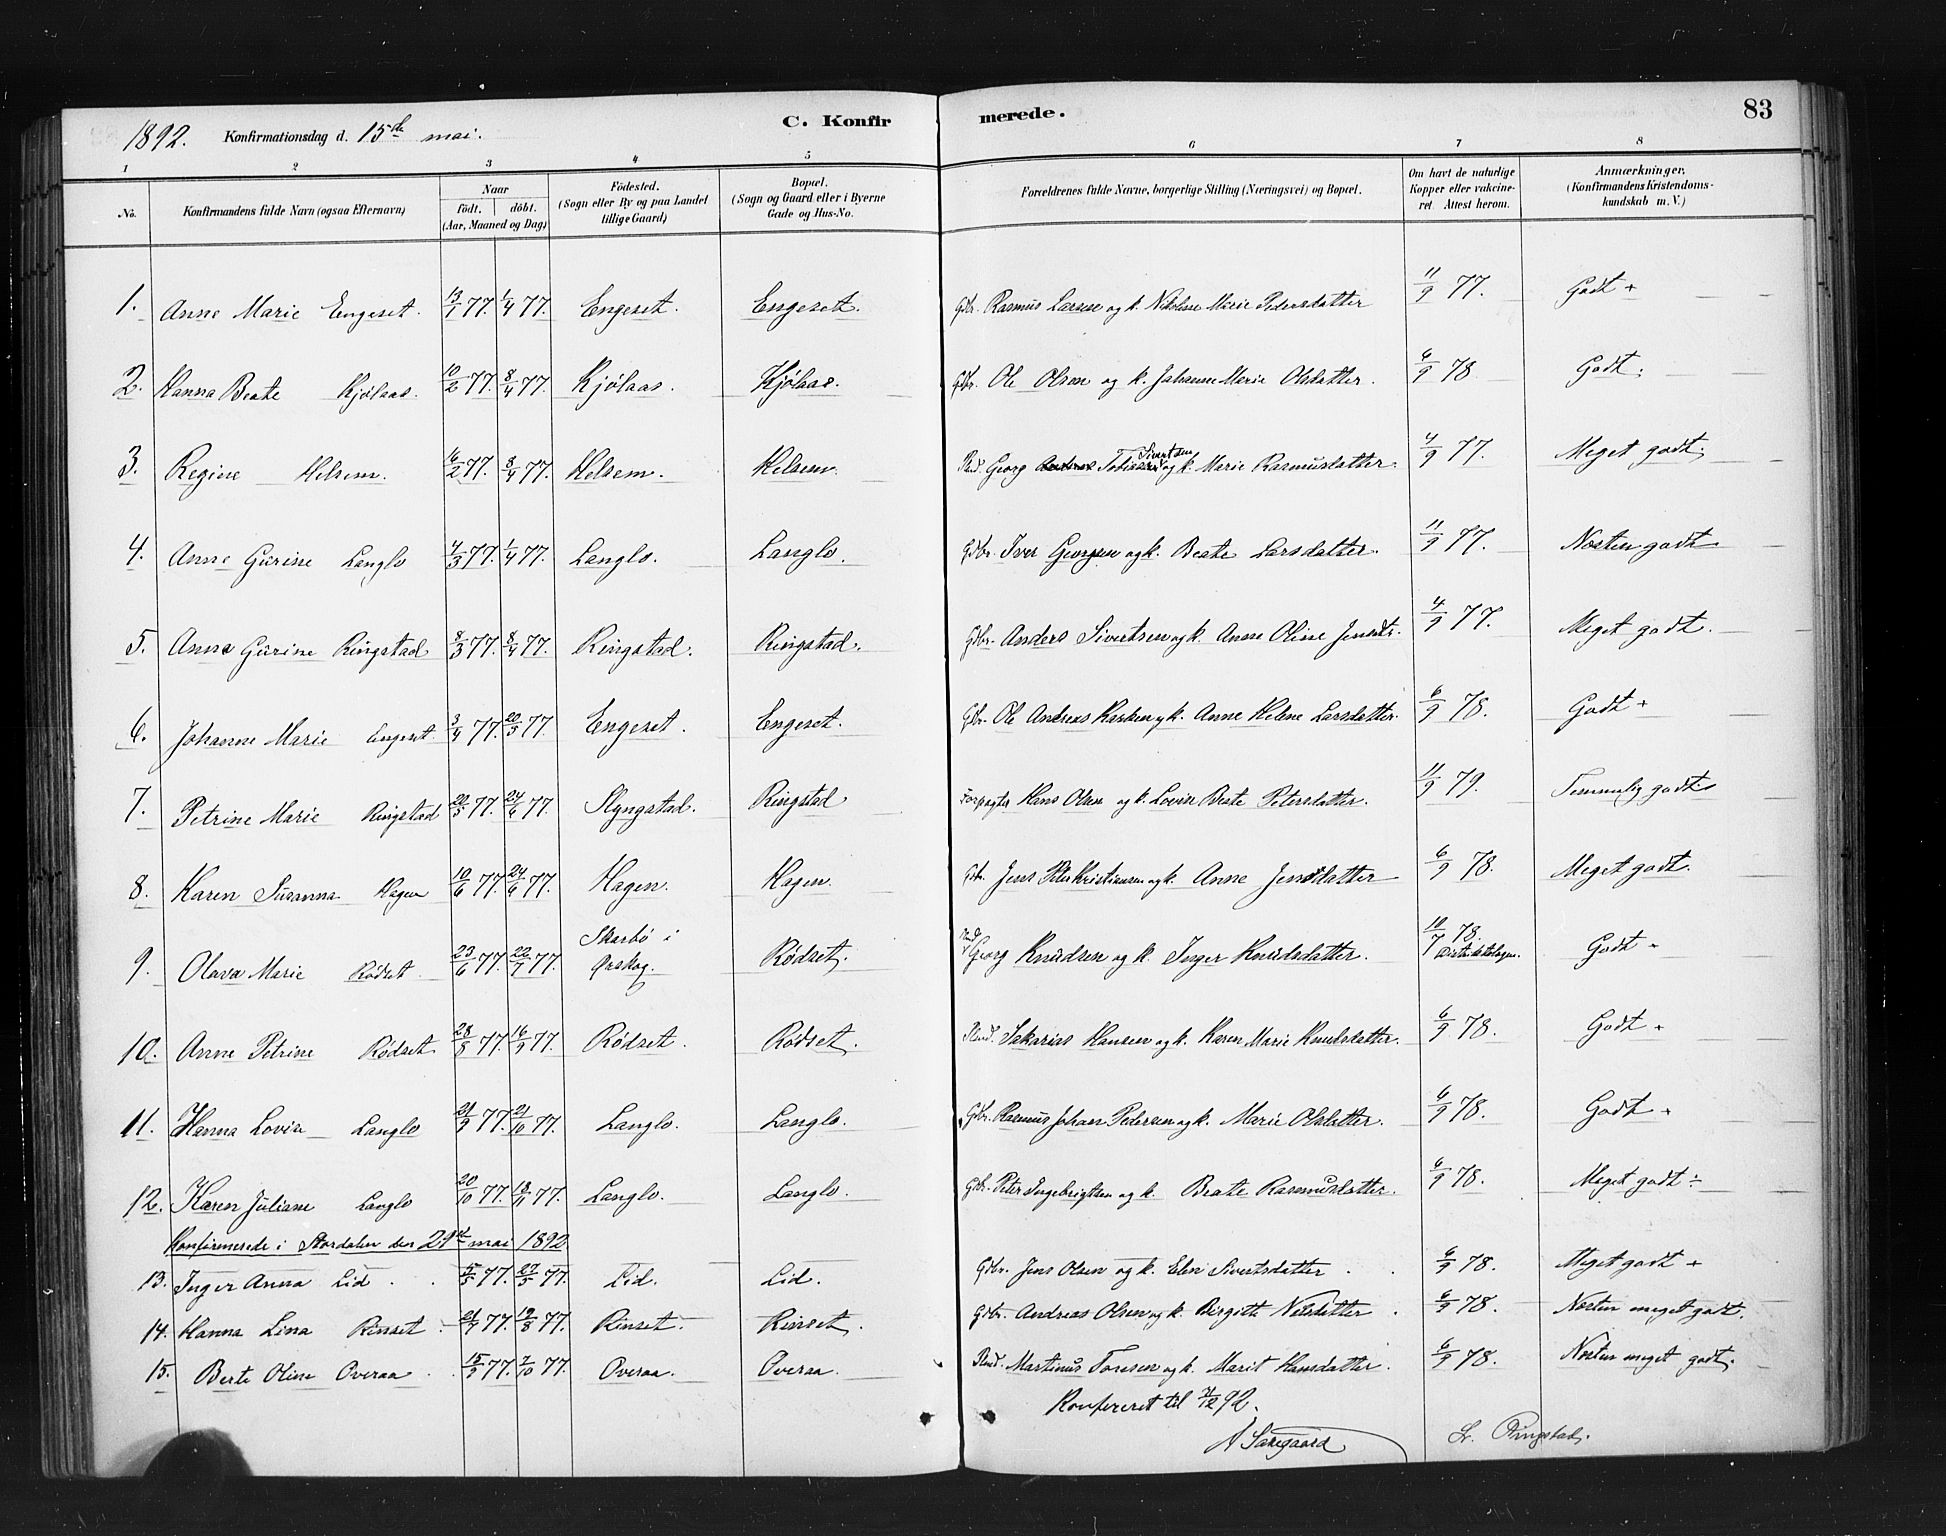 83
1892. Konfirmationsdag d. 15de mai. C. Konfirmerede.
1 2 3 4 5 6 7 8
No. Konfirmandens fulde Navn (ogsaa Efternavn) Naar født. døbt. (Aar, Maaned og Dag) Fødested. (Sogn eller By og paa Landet tillige Gaard) Bopæl. (Sogn og Gaard eller i Byerne Gade og Hus-No. Forældrenes fulde Navne, borgerlige Stilling (Næringsvei) og Bopæl. Om havt de naturlige Kopper eller vakcineret. Attest herom. Anmærkninger. (Konfirmandens Kristendomskundskab m. V.)
1. Anne Marie Engeset. 13/1 77. 1/4 77. Engeset. Engeset. Gbr. Rasmus Larsen og k. Nikoline Marie Pedersdatter 11/9 77. Godt +
2. Hanna Beate Kjølaas. 10/2 77. 8/4 77. Kjølaas. Kjølaas. Gbr. Ole Olsen og k. Johanne Marie Olsdatter. 6/9 78 Godt.
3. Regine Helsem. 16/2 77. 8/4 77. Helsem. Helsem. Ind. Georg Tobias Sivertsen og k. Marie Rasmusdatter. 4/9 77. Meget godt.
4. Anne Gurine Langlo 4/3 77. 1/4 77. Langlo. Langlo. Gbr. Iver Georgsen og k. Beate Larsdatter. 11/9 77. Næsten godt
5. Anna Gurine Ringstad 8/3 77. 8/4 77. Ringstad. Ringstad. Gbr. Anders Sivertsen og k. Anne Oline Jensdtr. 4/9 77. Meget godt.
6. Johanne Marie Engeset 3/4 77. 20/5 77. Engeset. Engeset. Gbr. Ole Andreas Karlsen og k. Anne Helene Larsdatter. 6/9 78. Godt +
7. Petrine Marie Ringstad 20/5 77. 24/6 77. Slyngstad. Ringstad Forpagter Hans Olsen og k. Lovise Beate Petersdatter. 11/9 79. Temmelig godt
8. Karen Susanna Hagen 10/6 77. 24/6 77. Hagen. Hagen. Gbr. Jens Peter Kristiansen og k. Anne Jensdatter 6/9 78. Meget godt.
9. Olava Marie Rødset. 23/6 77. 22/7 77. Skarbø i Ørskog. Rødset. Ind. Georg Knudsen og k. Inger Knudsdatter. 10/7 78. Distriktslægen. Godt -
10. Anne Petrine Rødset 28/8 77. 16/9 77. Rødset. Rødset. Ind. Sakarias Hansen og k. Karen Marie Knudsdatter. 6/9 78. Godt +
11. Hanna Lovise Langlo 21/9 77. 21/10 77. Langlo. Langlo. Gbr. Rasmus Johan Pedersen og k. Marie Olsdatter. 6/9 78. Godt +
12. Karen Juliane Langlo 20/10 77. 18/11 77. Langlo. Langlo. Gbr. Peter Ingebrigtsen og k. Beate Rasmusdatter. 6/9 78. Meget godt ÷
Konfirmerede i Stordalen den 29de mai 1892
13. Inger Anna Lid 5/5 77. 27/5 77. Lid. Lid. Gbr. Jens Olsen og k. Elen Sivertsdatter. 6/9 78. Meget godt +
14. Hanna Lina Rinset. 21/7 77. 19/8 77. Rinset. Rinset. Gbr. Andreas Olsen og k. Birgitte Nilsdatter. 6/9 78. Næsten meget godt.
15. Berte Oline Overaa 15/9 77. 7/10 77. Overaa. Overaa. Ind. Martinus Toresen og k. Marit Hansdatter. 6/9 78. Næsten meget godt.
Konfereret til 31/12 92.
Ringstad.